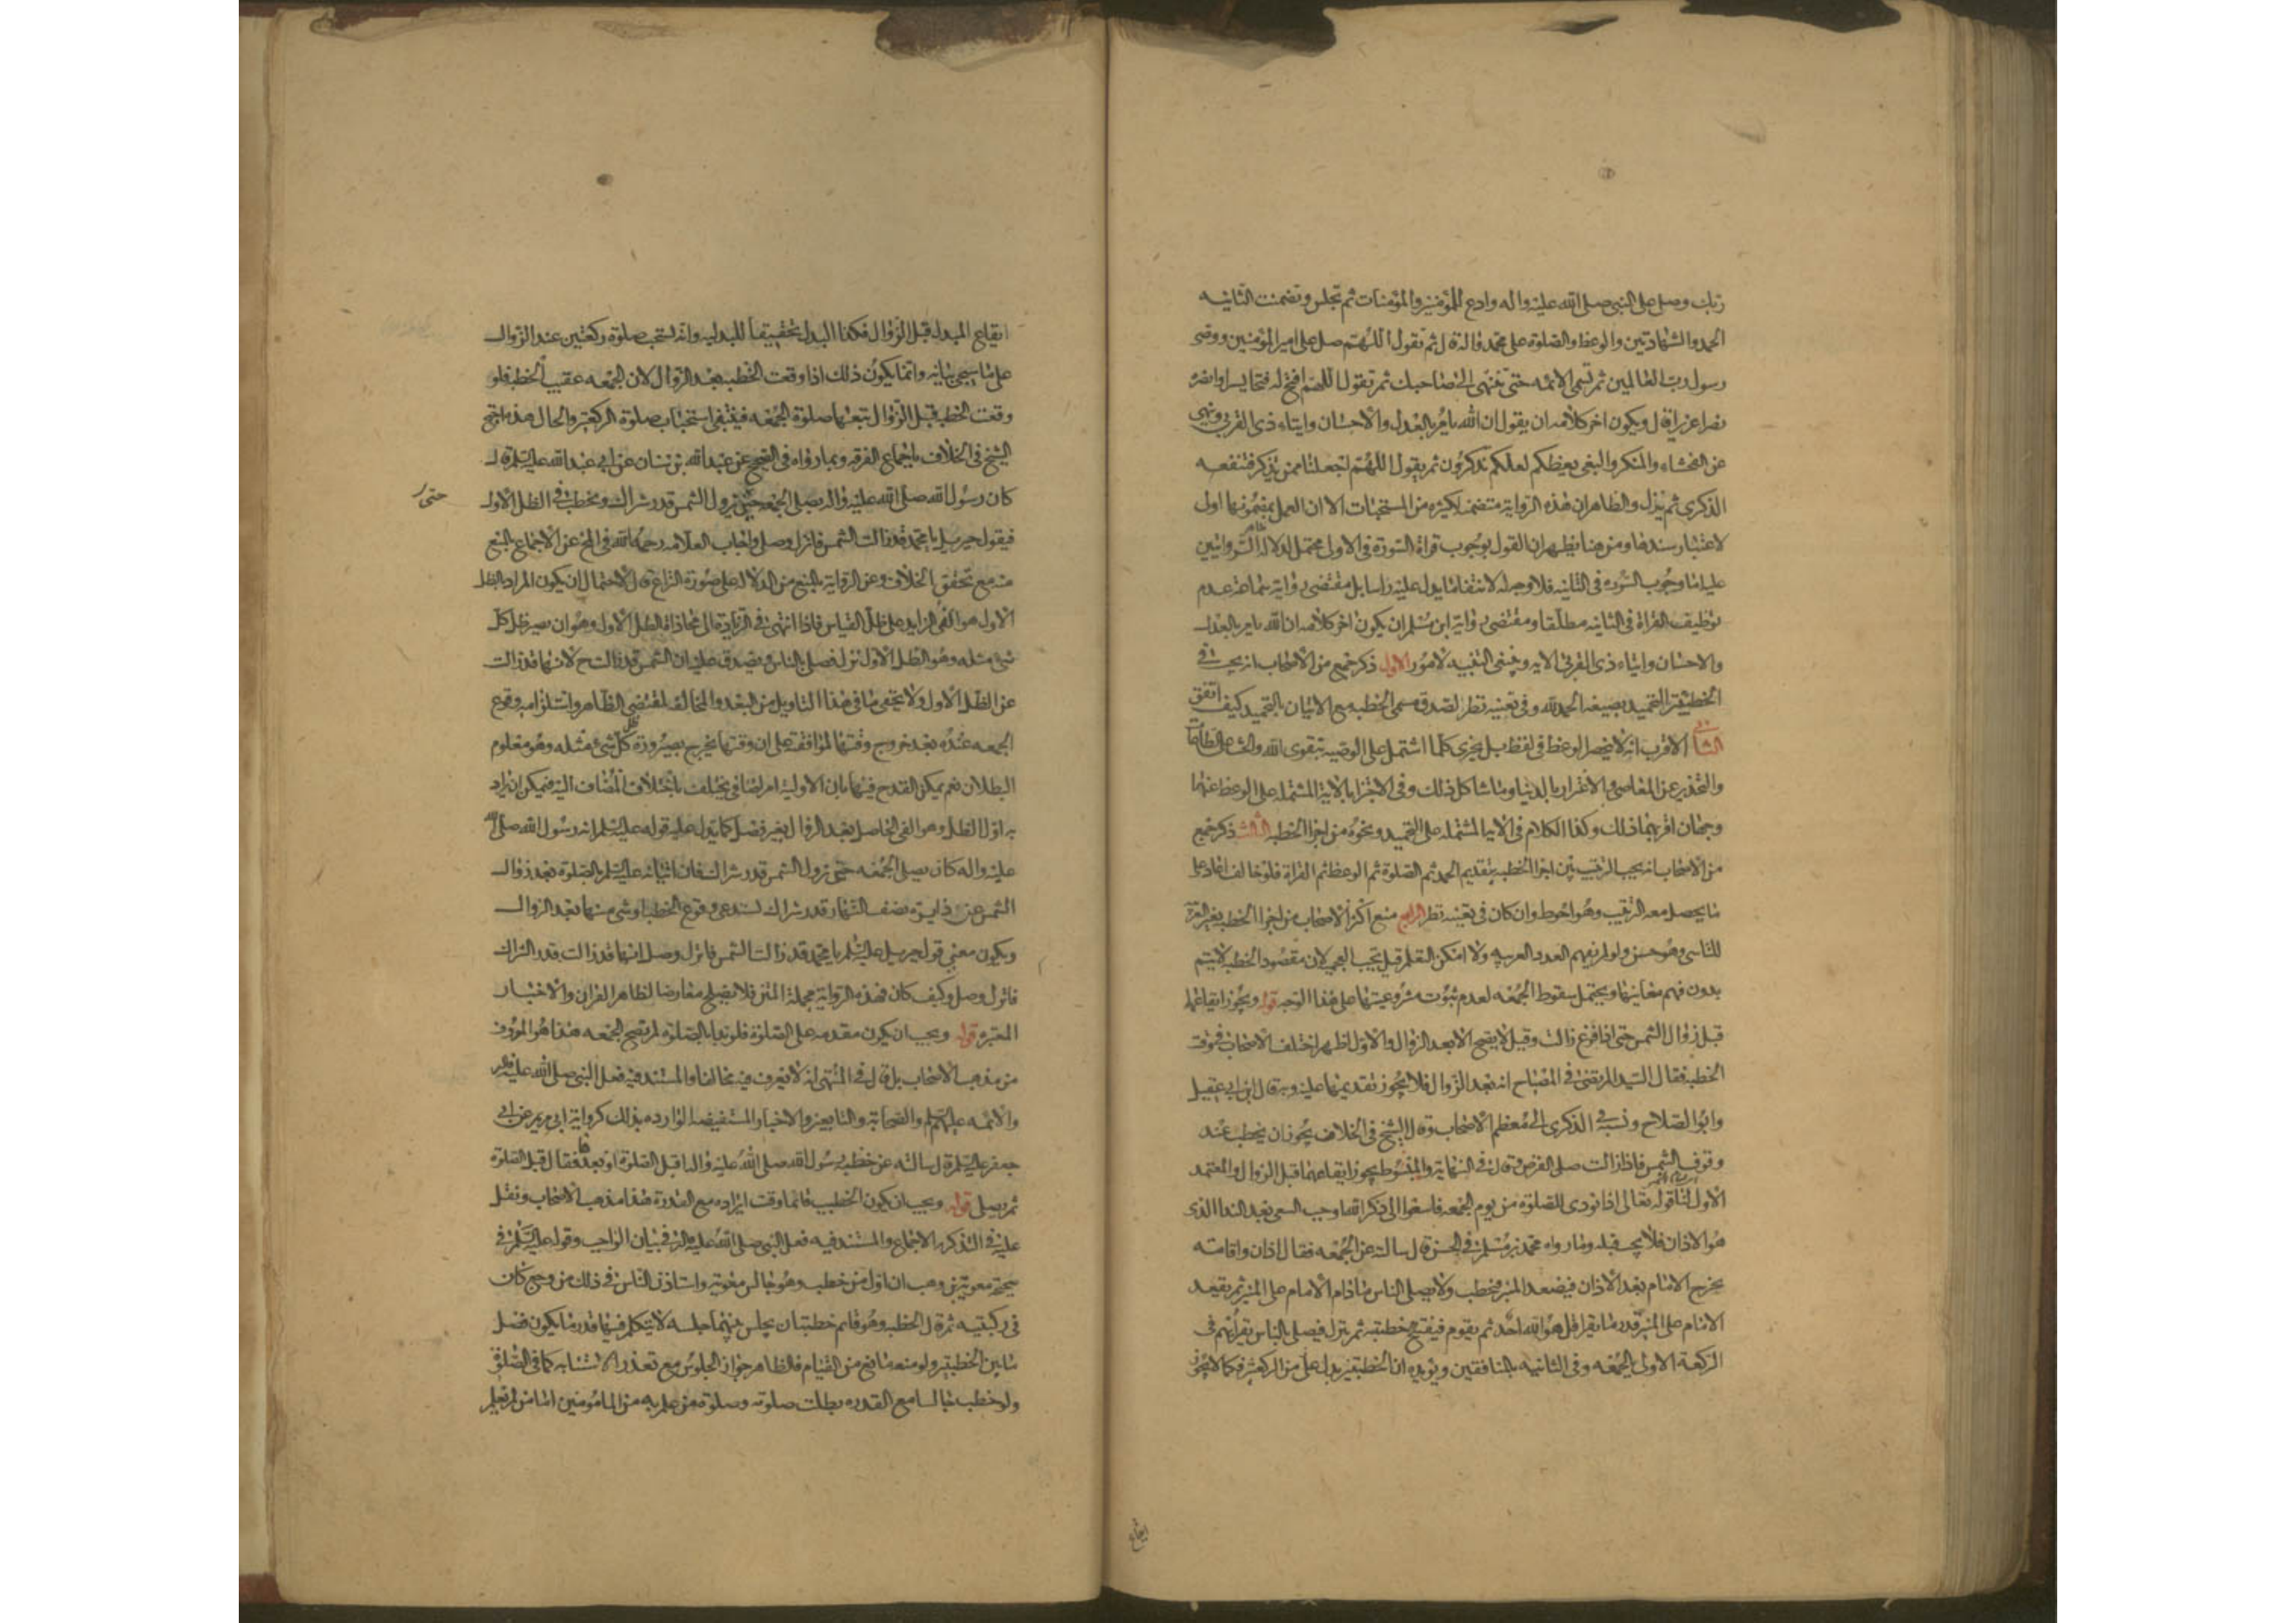 ربك وصل على النبي صلى الله عليه واله وادع للمؤمنين والمؤمنات ثم تجلس وتضمنت الثانيه
الحمد والشهادتين والوعظ والصلوة على محمد واله قال ثم تقول اللهم صل على امير المؤمنين ووصى
رسول رب العالمين ثم تسمى الائمه حتى تنتهى الى صاحبك ثم تقول اللهم افتح له فتحا يسيرا وانصره
نصرا عزيزا قال ويكون اخر كلامه ان يقول ان الله يامر بالعدل والاحسان وايتاء ذى القربى وينهى
عن الفحشاء والمنكر والبغى يعظكم لعلكم تذكرون ثم يقول اللهم اجعلنا ممن تذكر فتنفعه
الذكرى ثم ينزل والظاهر ان هذه الرواية متضمنه لكثيره من المستحبات الا ان العمل بمضمونها اولى
لاعتبار سندها ومن هنا يظهر ان القول بوجوب قراة السورة فى الاولى محتمل لدلالة الروايتين
عليه اما وجوب السوره فى الثانيه فلا وجه له لانتفا ما يدل عليه راسا بل مقتضى رواية سماعة عدم
توظيف القراة فى الثانيه مطلقا ومقتضى رواية ابن مسلم ان يكون اخر كلامه ان الله يامر بالعدل
والاحسان وايتاء ذى القربى الايه وينبغى التنبيه لامور الاول ذكر جمع من الاصحاب انه يجب فى
الخطبتين التحميد بصيغه الحمد لله وفى تعينه نظر لصدق مسمى الخطبه مع الاتيان بالتحميد كيف اتفق
الثانى الاقرب انه لا ينحصر الوعظ فى لفظ بل يجزى كلما اشتمل على الوصيه بتقوى الله والحث على الطاعات
والتحذير عن المعاصى والاغترار بالدنيا وما شاكل ذلك وفى الاجتزا بالاية المشتمله على الوعظ عنهما
وجهان اقربهما ذلك وكذا الكلام فى الايه المشتمله على التحميد ونحوه من اجزا الخطبه الثالث ذكر جمع
من الاصحاب انه يجب الترتيب بين اجزا الخطبه بتقديم الحمد ثم الصلوة ثم الوعظ ثم القراة فلو خالف اعاد على
ما يحصل معه الترتيب وهو احوط وان كان فى تعينه نظر الرابع منع اكثر الاصحاب من اجزا الخطبه بغير العربيه
للتاسى وهو حسن ولو لم يفهم العدد العربيه ولا امكن التعلم قيل تجب العجميه لان مقصود الخطبه لا يتم
بدون فهم معانيها ويحتمل سقوط الجمعه لعدم ثبوت مشروعيتها على هذا الوجه قوله ويجوز ايقاعهما
قبل زوال الشمس حتى اذا فرغ زالت وقيل لا يصح الا بعد الزوال والاول اظهر اختلف الاصحاب فى وقت
الخطبة فقال السيد المرتضى فى المصباح انه بعد الزوال فلا يجوز تقديمها عليه وبه قال ابن ابى عقيل
وابو الصلاح ونسبه فى الذكرى الى معظم الاصحاب وقال الشيخ فى الخلاف يجوز ان يخطب عند
وقوف الشمس فاذا زالت صلى الفرض وقال فى النهاية والمبسوط يجوز ايقاعهما قبل الزوال والمعتمد
الاول لنا قوله تعالى اذا نودى للصلوة من يوم الجمعه فاسعوا الى ذكر الله اوجب السعى بعد الندا الذى
هو الاذان فلا يجب قبله وما رواه محمد بن مسلم فى الحسن قال سالته عن الجمعه فقال اذان واقامته
يخرج الامام بعد الاذان فيصعد المنبر فيخطب ولا يصلى الناس ما دام الامام على المنبر ثم يقعد
الامام على المنبر قدر ما يقرا قل هو الله احد ثم يقوم فيفتتح خطبته ثم ينزل فيصلى بالناس يقرا بهم فى
الركعة الاولى بالجمعه وفى الثانيه بالمنافقين ويؤيده ان الخطبتين بدل عن الركعتين فكما لا يجوز
ايقاع
ايقاع المبدل قبل الزوال فكذا البدل تحقيقا للبدليه وانه يستحب صلوة ركعتين عند الزوال
على ما سيجى بيانه وانما يكون ذلك اذا وقعت الخطبه بعد الزوال لان الجمعه عقيب الخطبه فلو
وقعت الخطبه قبل الزوال تبعتها صلوة الجمعه فينتفى استحباب صلوة الركعتين والحال هذه احتج
الشيخ فى الخلاف باجماع الفرقه وبما رواه فى الصحيح عن عبد الله بن سنان عن ابى عبد الله عليه السلم قال
كان رسول الله صلى الله عليه واله يصلى الجمعه حين تزول الشمس قدر شراك ويخطب فى الظل الاول
حتى
فيقول جبريل يا محمد قد زالت الشمس فانزل وصل واجاب العلامه رحمه الله فى المخ عن الاجماع بالمنع
منه مع تحقق الخلاف وعن الرواية بالمنع من الدلالة على صورة النزاع قال لاحتمال ان يكون المراد بالظل
الاول هو الفى الزايد على ظل القياس فاذا انتهى فى الزيادة الى محاذاة الظل الاول وهو ان يصير ظل كل
شى مثله وهو الظل الاول نزل فصلى بالناس ويصدق عليه ان الشمس قد زالت ح لانها قد زالت
عن الظل الاول ولا يخفى ما فى هذا التاويل من البعد والمخالفه لمقتضى الظاهر واستلزامه وقوع
الجمعه عنده بعد خروج وقتها لموافقته على ان وقتها يخرج بصيرورة ظل كل شئ مثله وهو معلوم
البطلان نعم يمكن القدح فيها بان الاولية امر اضافى يختلف باختلاف المضاف اليه فيمكن ان يراد
به اول الظل وهو الفى الحاصل بعد الزوال بغير فصل كما يدل عليه قوله عليه السلم انه رسول الله صلى الله
عليه واله كان يصلى الجمعه حتى تزول الشمس قدر شراك فان اتيانه عليه السلم بالصلوة بعد زوال
الشمس عن دايرة نصف النهار قدر شراك يستدعى وقوع الخطبه او شى منها بعد الزوال
ويكون معنى قول جبريل عليه السلم يا محمد قد زالت الشمس فانزل وصل انها قد زالت قدر الشراك
فانزل وصل وكيف كان فهذه الرواية مجملة المتن فلا يصلح معارضا لظاهر القران والاخبار
المعتبره قوله ويجب ان يكون مقدمه على الصلوة فلو بدا بالصلوة لم تصح الجمعه هذا هو المعروف
من مذهب الاصحاب بل قال فى المنتهى انه لا يعرف فيه مخالفا والمستند فيه فعل النبى صلى الله عليه واله
والائمه عليهم السلم والصحابة والتابعين والاخبار المستفيضه الوارده بذلك كرواية ابى مريم عن ابى
جعفر عليه السلم قال سالته عن خطبه رسول الله صلى الله عليه واله اقبل الصلوة او بعدها فقال قبل الصلوة
ثم يصلى قوله ويجب ان يكون الخطيب قائما وقت ايراده مع القدرة هذا مذهب الاصحاب ونقل
عليه فى التذكره الاجماع والمستند فيه فعل النبى صلى الله عليه واله فى بيان الواجب وقوله عليه السلم فى
صحيحة معوية بن وهب ان اول من خطب وهو جالس معوية واستاذن الناس فى ذلك من وجع كان
فى ركبتيه ثم قال الخطبه وهو قائم خطبتان يجلس بينهما جلسه لا يتكلم فيها قدر ما يكون فصل
ما بين الخطبتين ولو منعه مانع من القيام فالظاهر جواز الجلوس مع تعذر الاستنابه كما فى الصلوة
ولو خطب جالسا مع القدره بطلت صلوته وصلوة من علم به من المامومين اما من لم يعلم